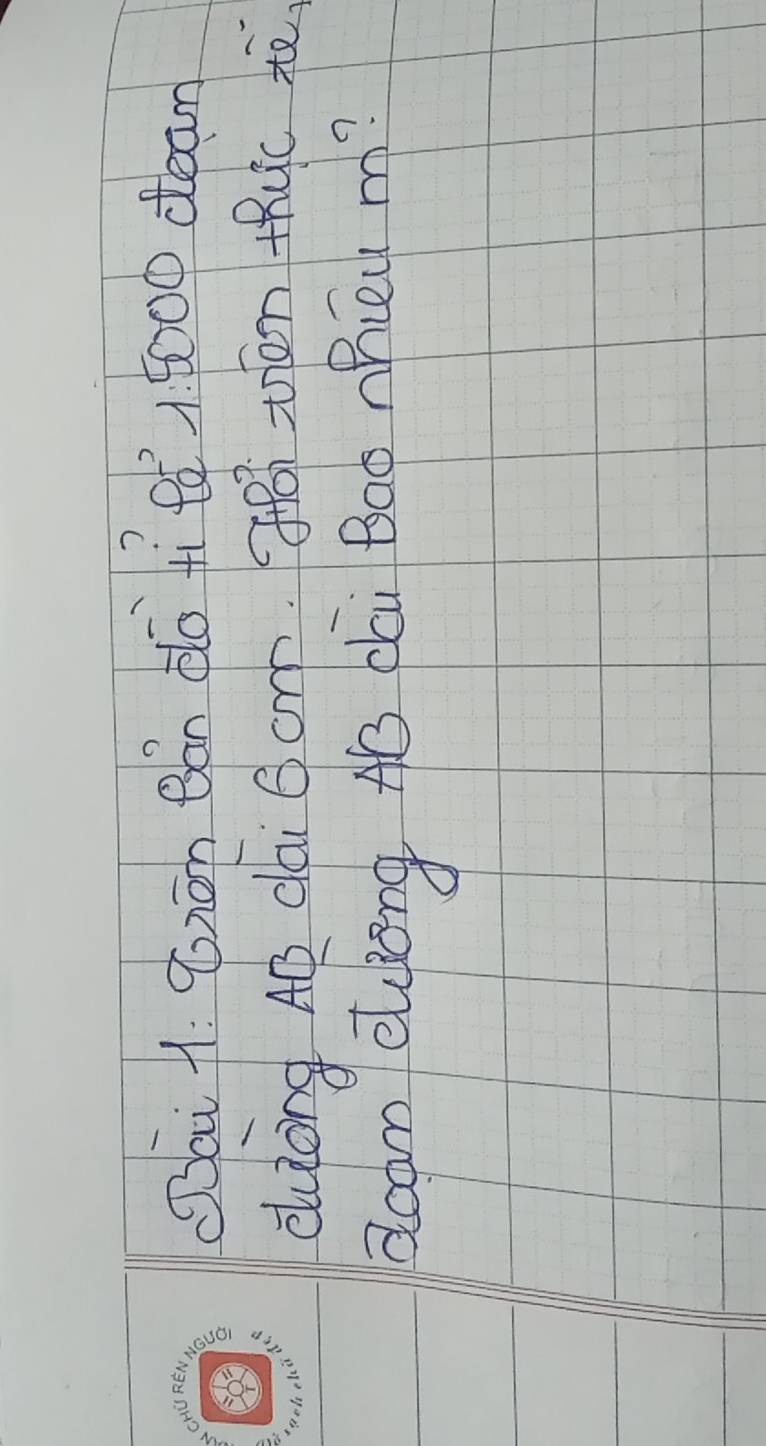 Bài 1: Trên bản đồ tỉ lệ 1:5000 đoạn
đường AB dài 6 cm. Hỏi trên thực tế,
đoạn đường AB dài bao nhiêu m?
CHỮ RÈN NGƯỜI